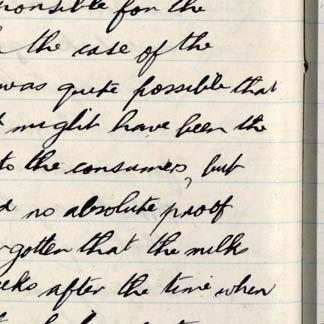 ponsible for the
the case of the
was quite possible that
might have been the
to the consumers, but
no absolute proof
gotten that the milks
eeks after the time when